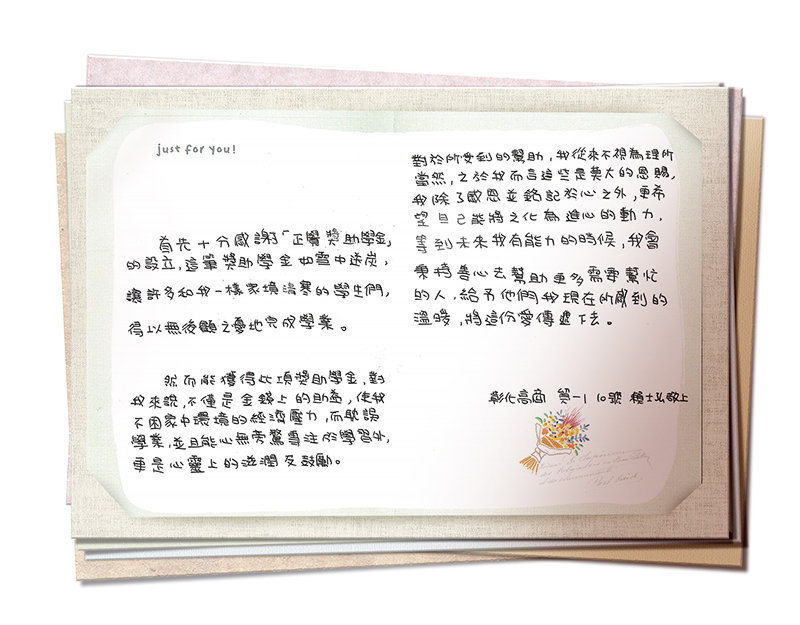 just for you!
首先十分感謝「正覺獎助學金」
的設立,這筆獎助學金如雪中送炭,
讓許多和我一樣家境清寒的學生們,
得以無後顧之憂地完成學業。
然而能獲得此項獎助學金,對
我來說,不僅是金錢上的助益,使我
不因家中環境的經濟壓力,而耽誤
學業,並且能心無旁騖專注於學習外,
更是心靈上的滋潤及鼓勵。
對於所受到的幫助,我從來不視為理所
當然,之於我而言這些是莫大的恩賜,
我除了感恩並銘記於心之外,更希
望自己能將之化為進心的動力,
等到未來我有能力的時候,我會
秉持善心去幫助更多需要幫忙
的人,給予他們我現在所感到的
溫暖,將這份愛傳遞下去。
彰化高商 貿一1 10號 賴士弘敬上